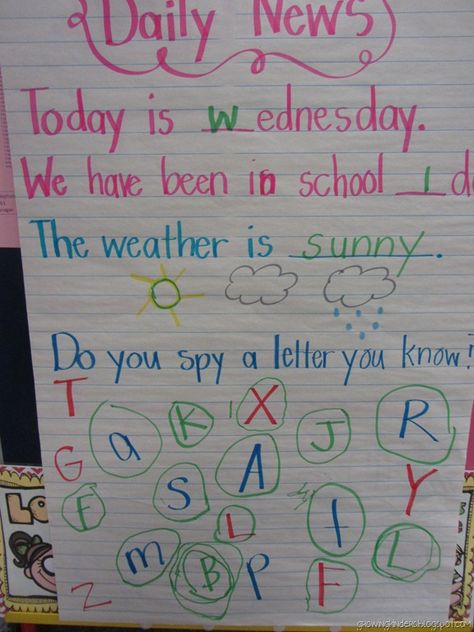 Daily News
Today is Wednesday.
We have been in school 1 d
The weather is sunny.
Do you spy a letter you know!
T K X J R
a
G S A Y
F L t L
m B P F
Z
growingkinders.blogspot.com